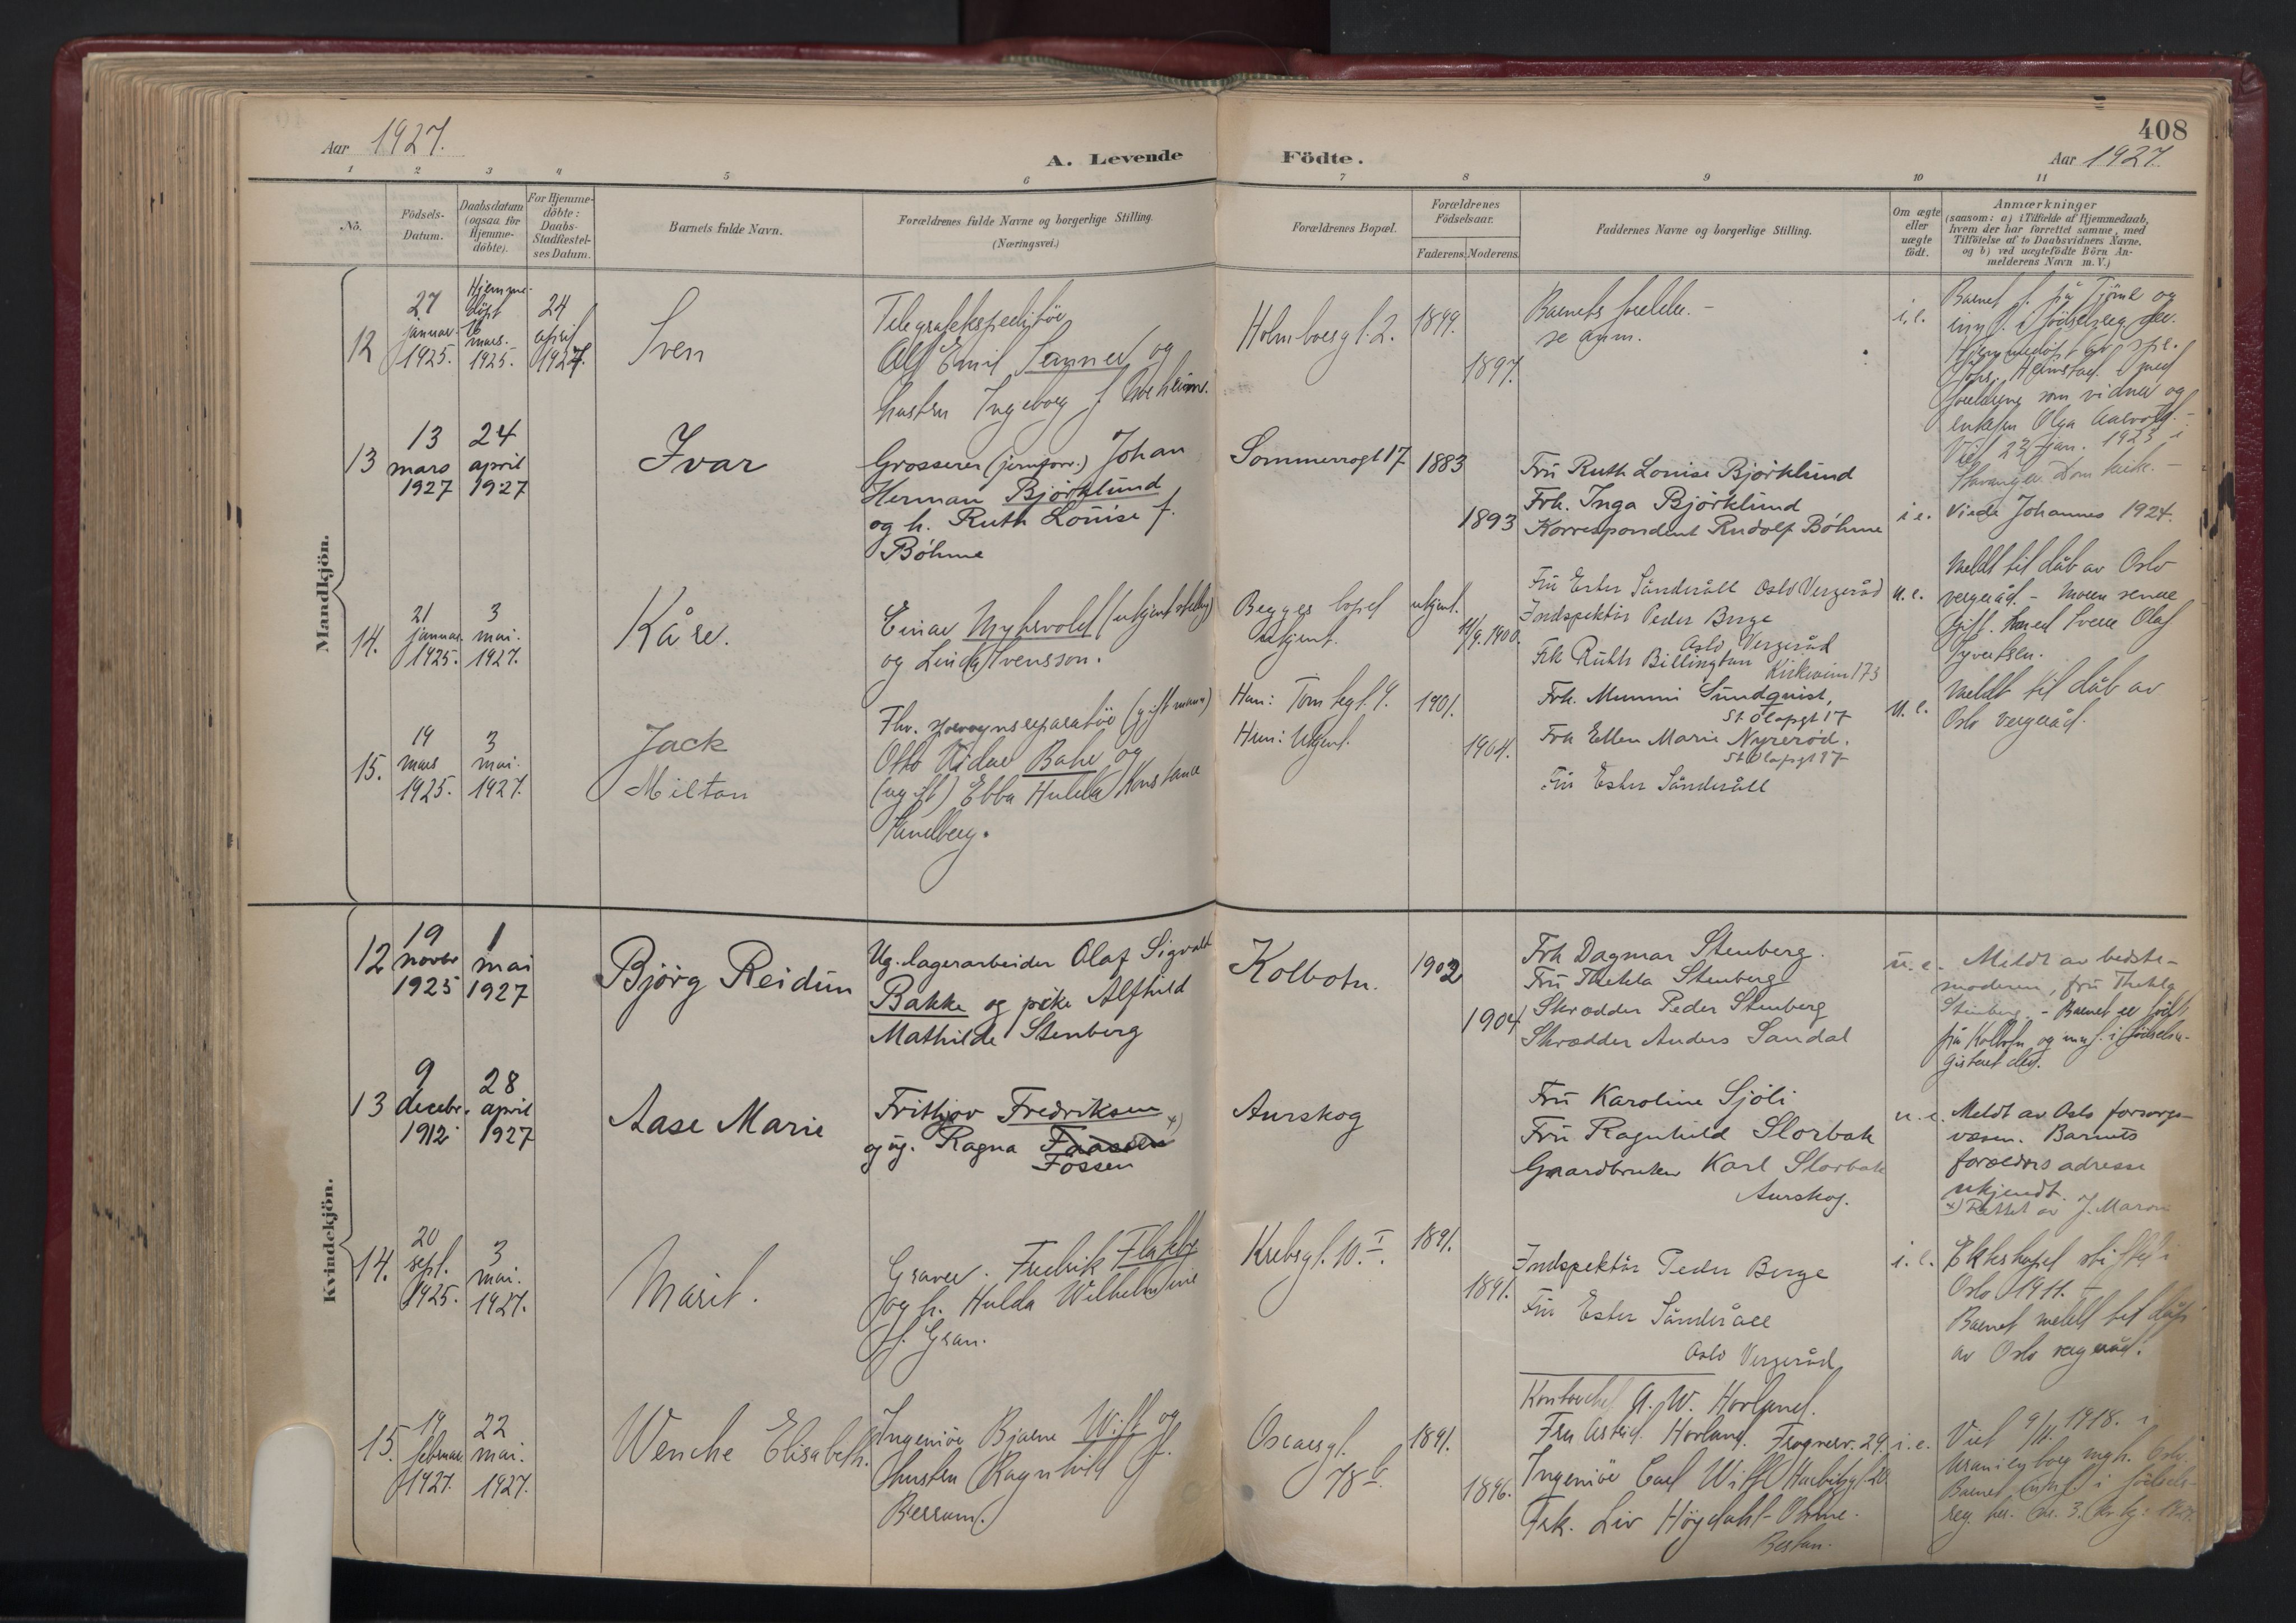 408
Aar 1927.
A. Levende
Födte.
Aar 1927.
1 2 3 4 5 6 7 8 9 10 11
No.
Födsels-
Datum.
Daabsdatum
(ogsaa for
Hjemme-
döbte).
For Hjemme-
döbte:
Daabs-
Stadfæstel-
ses Datum.
Barnets fulde Navn.
Forældrenes fulde Navne og borgerlige Stilling.
(Næringsvei.)
Forældrenes Bopæl.
Forældrenes
Födselsaar.
Faderens. Moderens.
Faddernes Navne og borgerlige Stilling.
Om ægte
eller
uægte
födt.
Anmærkninger
(saasom: a) i Tilfælde af Hjemmedaab,
hvem der har forrettet samme, med
Tilföielse af to Daabsvidners Navne,
og b) ved uægtefödte Börn An-
melderens Navn m. V.)
Mandkjön.
12
27
januar
1925.
Hjemme-
döpt
mars.
1925.
24
april
1927.
Sven
Telegrafekspeditör
Alf Emil Sannes og
hustru Ingeborg f.
Holmboesgt. 2.
1899.
1897.
Barnets foreldre. -
se anm.
i. e.
Barnet f. på Tjöme og
innf. i födselsreg. der.
Hjemmedöpt av spr.
Johs. med
foreldrene som vidner og
enkefru Olga
Viet 23 jan. 1923 i
Stavanger Domkirke. -
13
13
mars
1927
24
april
1927
Ivar
Grosserer (jernforr.) Johan
Herman Björklund
og h. Ruth Louise f.
Böhme
Sommerrogt 17
1883
1893
Fru Ruth Louise Björklund
Frk. Inga Björklund
Korrespondent Rudolf Böhme
i e.
Viede Johannes 1924.
14.
21
januar
1925.
3
mai.
1927.
Kåre.
Einar Myhrvold (ukjent stilling)
og Linda Svensson.
Begges bopel
ukjent.
ukjent.
11/9. 1900.
Fru Ester Sänderåll Oslo Vergeråd
Indspektör Peder Berge
Oslo Vergeråd
Frk Ruth Billington Kirkeveien 173
u. e.
Meldt til dåb av Oslo
vergeråd. - Moren senere
gift med Sverre Olaf
Syvertsen.
15.
19
mars
1925.
3
mai.
1927.
Jack
Milton
Fhv. (gift mann)
Otto Vidar Bahr og
(ugift) Ebba Hulda Konstance
Sundberg.
Han: Tomtegt. 9.
Hun: Ukjent.
1901.
1904.
Frk. Mummi Sundquist,
St. Olafsgt 17
Frk Ellen Marie Nyreröd.
St. Olafsgt 17
Fru Ester Sänderåll
u. e.
Meldt til dåb av
Oslo vergeråd.
Kvindekjön.
12
19
novbr
1925
1
mai
1927
Björg Reidun
Ug. lagerarbeider Olaf Sigvald
Bakke og pike Alfhild
Mathilde Stenberg
Kolbotn.
1902
1904
Frk Dagmar Stenberg.
Fru Thekla Stenberg
Skrædder Peder Stenberg
Skrædder Anders Sandal
u. e.
Meldt av bedste-
moderen, fru Thekla
Stenberg. - Barnet er födt
på Kolbotn og innf. i födselsre-
gisteret der.
13
9
decebr.
1912
28
april
1927
Aase Marie
Frithjov Fredriksen
og ug. Ragna Faassen x)
Fossen
Aurskog
Fru Karoline Sjöli
Fru Ragnhild Storbak
Gaardbruker Karl Storbak
Aurskog.
u. e.
Meldt av Oslo forsorgs-
væsen. Barnets
forældres adresse
ukjendt.
x) Rettet av J. Maron
14.
20
sept.
1925.
3
mai.
1927.
Marit.
Graver. Fredrik Flakby
og h. Hulda Wilhelmine
f. Gran.
Krebsgt. 10. I.
1891.
1891.
Indspektör Peder Berge
Fru Ester Sänderåll
Oslo Vergeråd
i. e.
Ekteskapet stiftet i
Oslo 1911. -
Barnet meldt til dåp
av Oslo vergeråd.
15.
19
februar
1927.
22
mai.
1927.
Wenche Elisabeth.
Ingeniör Bjarne Wiff og
hustru Ragnhild f.
Berrum.
Oscarsgt.
78 b.
1891.
1896.
Kontorchef A. W. Horland.
Fru Astrid Horland. Frognerv. 29.
Ingeniör Carl Wiff Harbitzgt. 20
Frk. Liv Höydahl-Ohme.
Bestun.
i. e.
Viet 9/11. 1918. i
Uranienborg mgh. Oslo.
Barnet innf. i födsels-
reg. her.